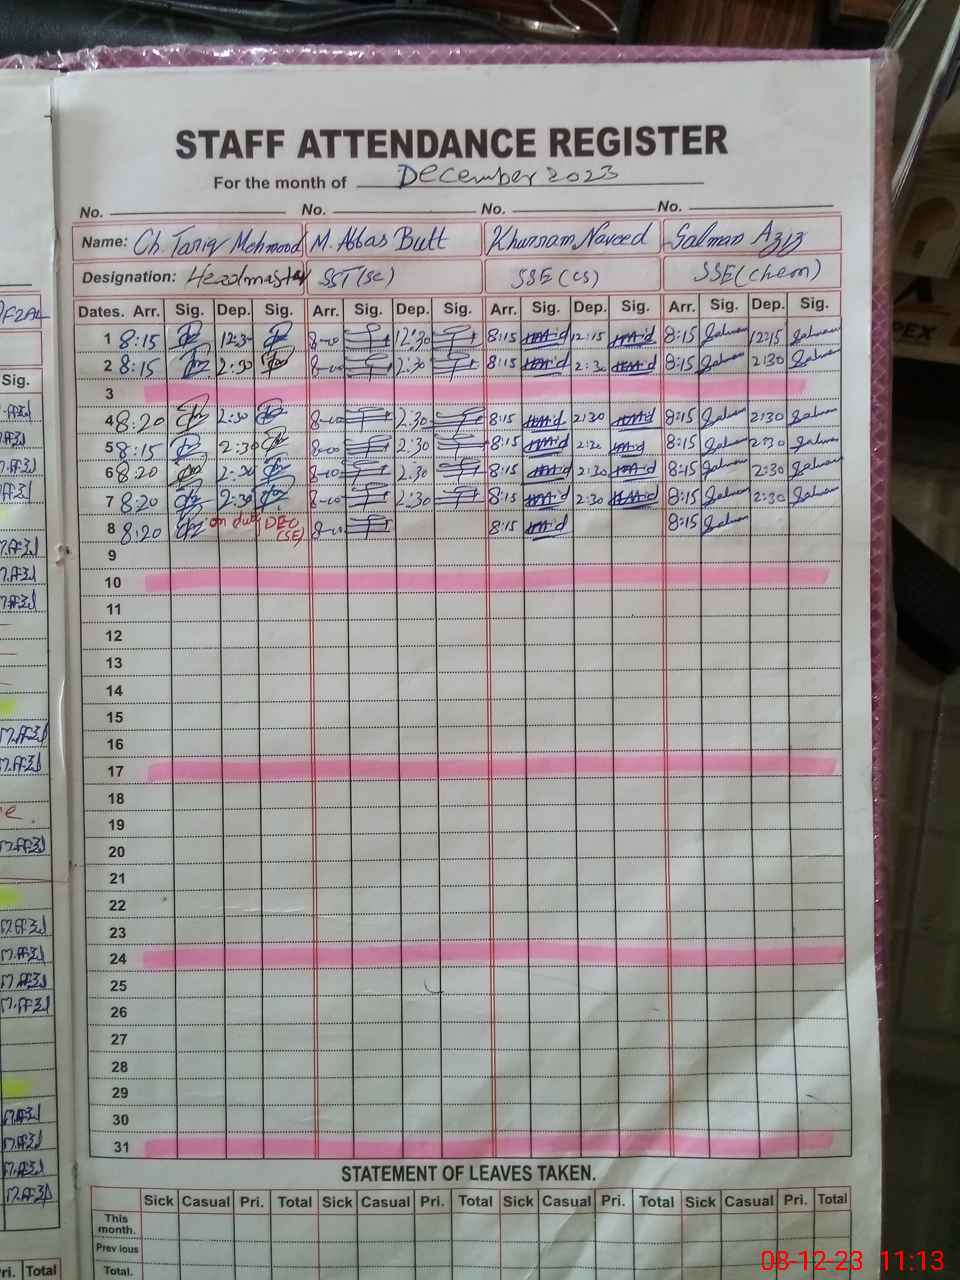 STAFF ATTENDANCE REGISTER
For the month of December 2023
No. No. No. No.
Name: Ch. Tariq Mehmood M. Abbas Butt Khurram Naveed Salman Aziz
Designation: Headmaster SST (Sc) SSE (CS) SSE (Chem)
Dates. Arr. Sig. Dep. Sig. Arr. Sig. Dep. Sig. Arr. Sig. Dep. Sig. Arr. Sig. Dep. Sig.
1 8:15 12:30 8-00 12:30 8:15 12:15 8:15 Salman 12:15 Salman
2 8:15 2:30 8-00 2:30 8:15 2:30 8:15 Salman 2:30 Salman
3
4 8:20 2:30 8-00 2:30 8:15 2:30 8:15 Salman 2:30 Salman
5 8:15 2:30 8-00 2:30 8:15 2:30 8:15 Salman 2:30 Salman
6 8:20 2:30 8-00 2:30 8:15 2:30 8:15 Salman 2:30 Salman
7 8:20 2:30 8-00 2:30 8:15 2:30 8:15 Salman 2:30 Salman
8 8:20 on duty DEO (SE) 8-00 8:15 8:15 Salman
9
10
11
12
13
14
15
16
17
18
19
20
21
22
23
24
25
26
27
28
29
30
31
STATEMENT OF LEAVES TAKEN.
Sick Casual Pri. Total Sick Casual Pri. Total Sick Casual Pri. Total Sick Casual Pri. Total
This month.
Previous
Total.
Sig.
Pri. Total
PEX
08-12-23 11:13